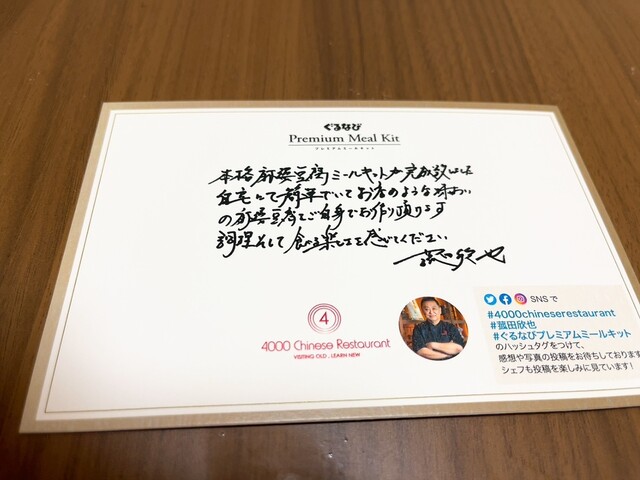 ぐるなび
Premium Meal Kit
プレミアムミールキット
本格麻婆豆腐ミールキットが完成致しました
自宅にて簡単でいてお店のような味わい
の麻婆豆腐をご自身でお作り頂けます
調理そして食べる楽しさを感じてください
4
4000 Chinese Restaurant
VISITING OLD , LEARN NEW
SNSで
#4000chineserestaurant
#菰田欣也
#ぐるなびプレミアムミールキット
のハッシュタグをつけて、
感想や写真の投稿をお待ちしております
シェフも投稿を楽しみに見ています!